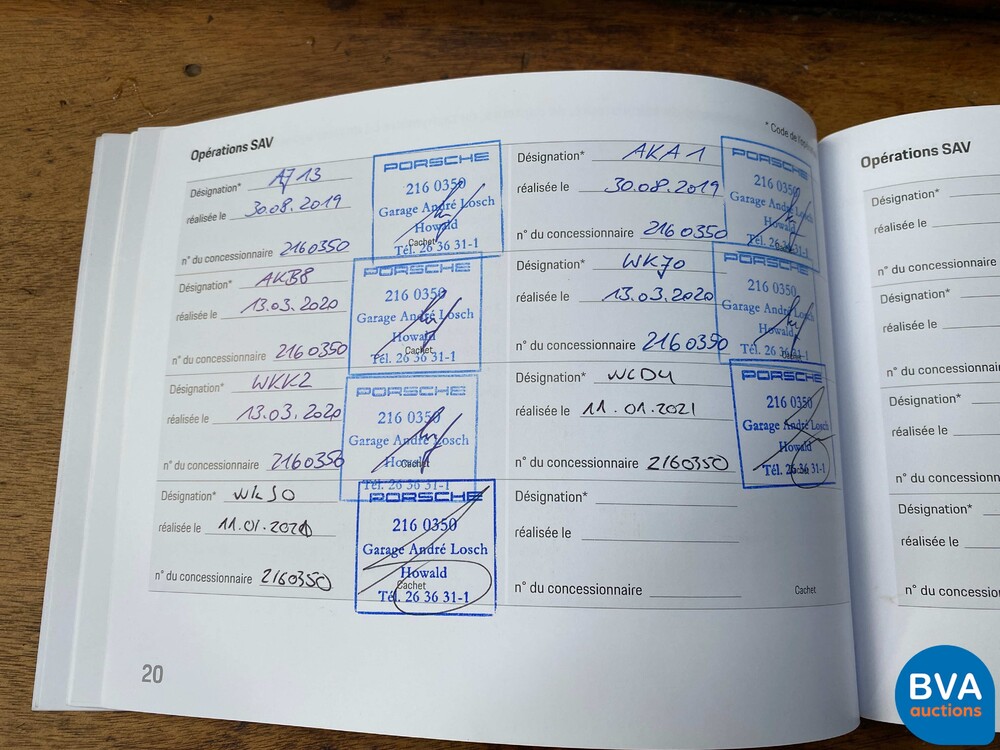 Opérations SAV
* Code de l'opé
Désignation* AJ13
réalisée le 30.08.2019
n° du concessionnaire 2160350
PORSCHE
216 0350
Garage André Losch
Howald
Cachet
Tél. 26 36 31-1
Désignation* AKA1
réalisée le 30.08.2019
n° du concessionnaire 2160350
PORSCHE
216 0350
Garage André Losch
Howald
Tél. 26 36 31-1
Désignation* AKB8
réalisée le 13.03.2020
n° du concessionnaire 2160350
PORSCHE
216 0350
Garage André Losch
Howald
Cachet
Tél. 26 36 31-1
Désignation* WKJ0
réalisée le 13.03.2020
n° du concessionnaire 2160350
PORSCHE
216 0350
Garage André Losch
Howald
Tél. 26 36 31-1
Désignation* WKK2
réalisée le 13.03.2020
n° du concessionnaire 2160350
PORSCHE
216 0350
Garage André Losch
Howald
Cachet
Tél. 26 36 31-1
Désignation* WLD4
réalisée le 11.01.2021
n° du concessionnaire 2160350
PORSCHE
216 0350
Garage André Losch
Howald
Tél. 26 36 31-1
Désignation* WKJ0
réalisée le 11.01.2021
n° du concessionnaire 2160350
PORSCHE
216 0350
Garage André Losch
Howald
Cachet
Tél. 26 36 31-1
Désignation*
réalisée le
n° du concessionnaire
Cachet
20
Opérations SAV
Désignation*
réalisée le
n° du concessionnaire
Désignation*
réalisée le
n° du concessionnai
Désignation*
réalisée le
n° du concessionnai
Désignation*
réalisée le
n° du concessio
BVA
auctions